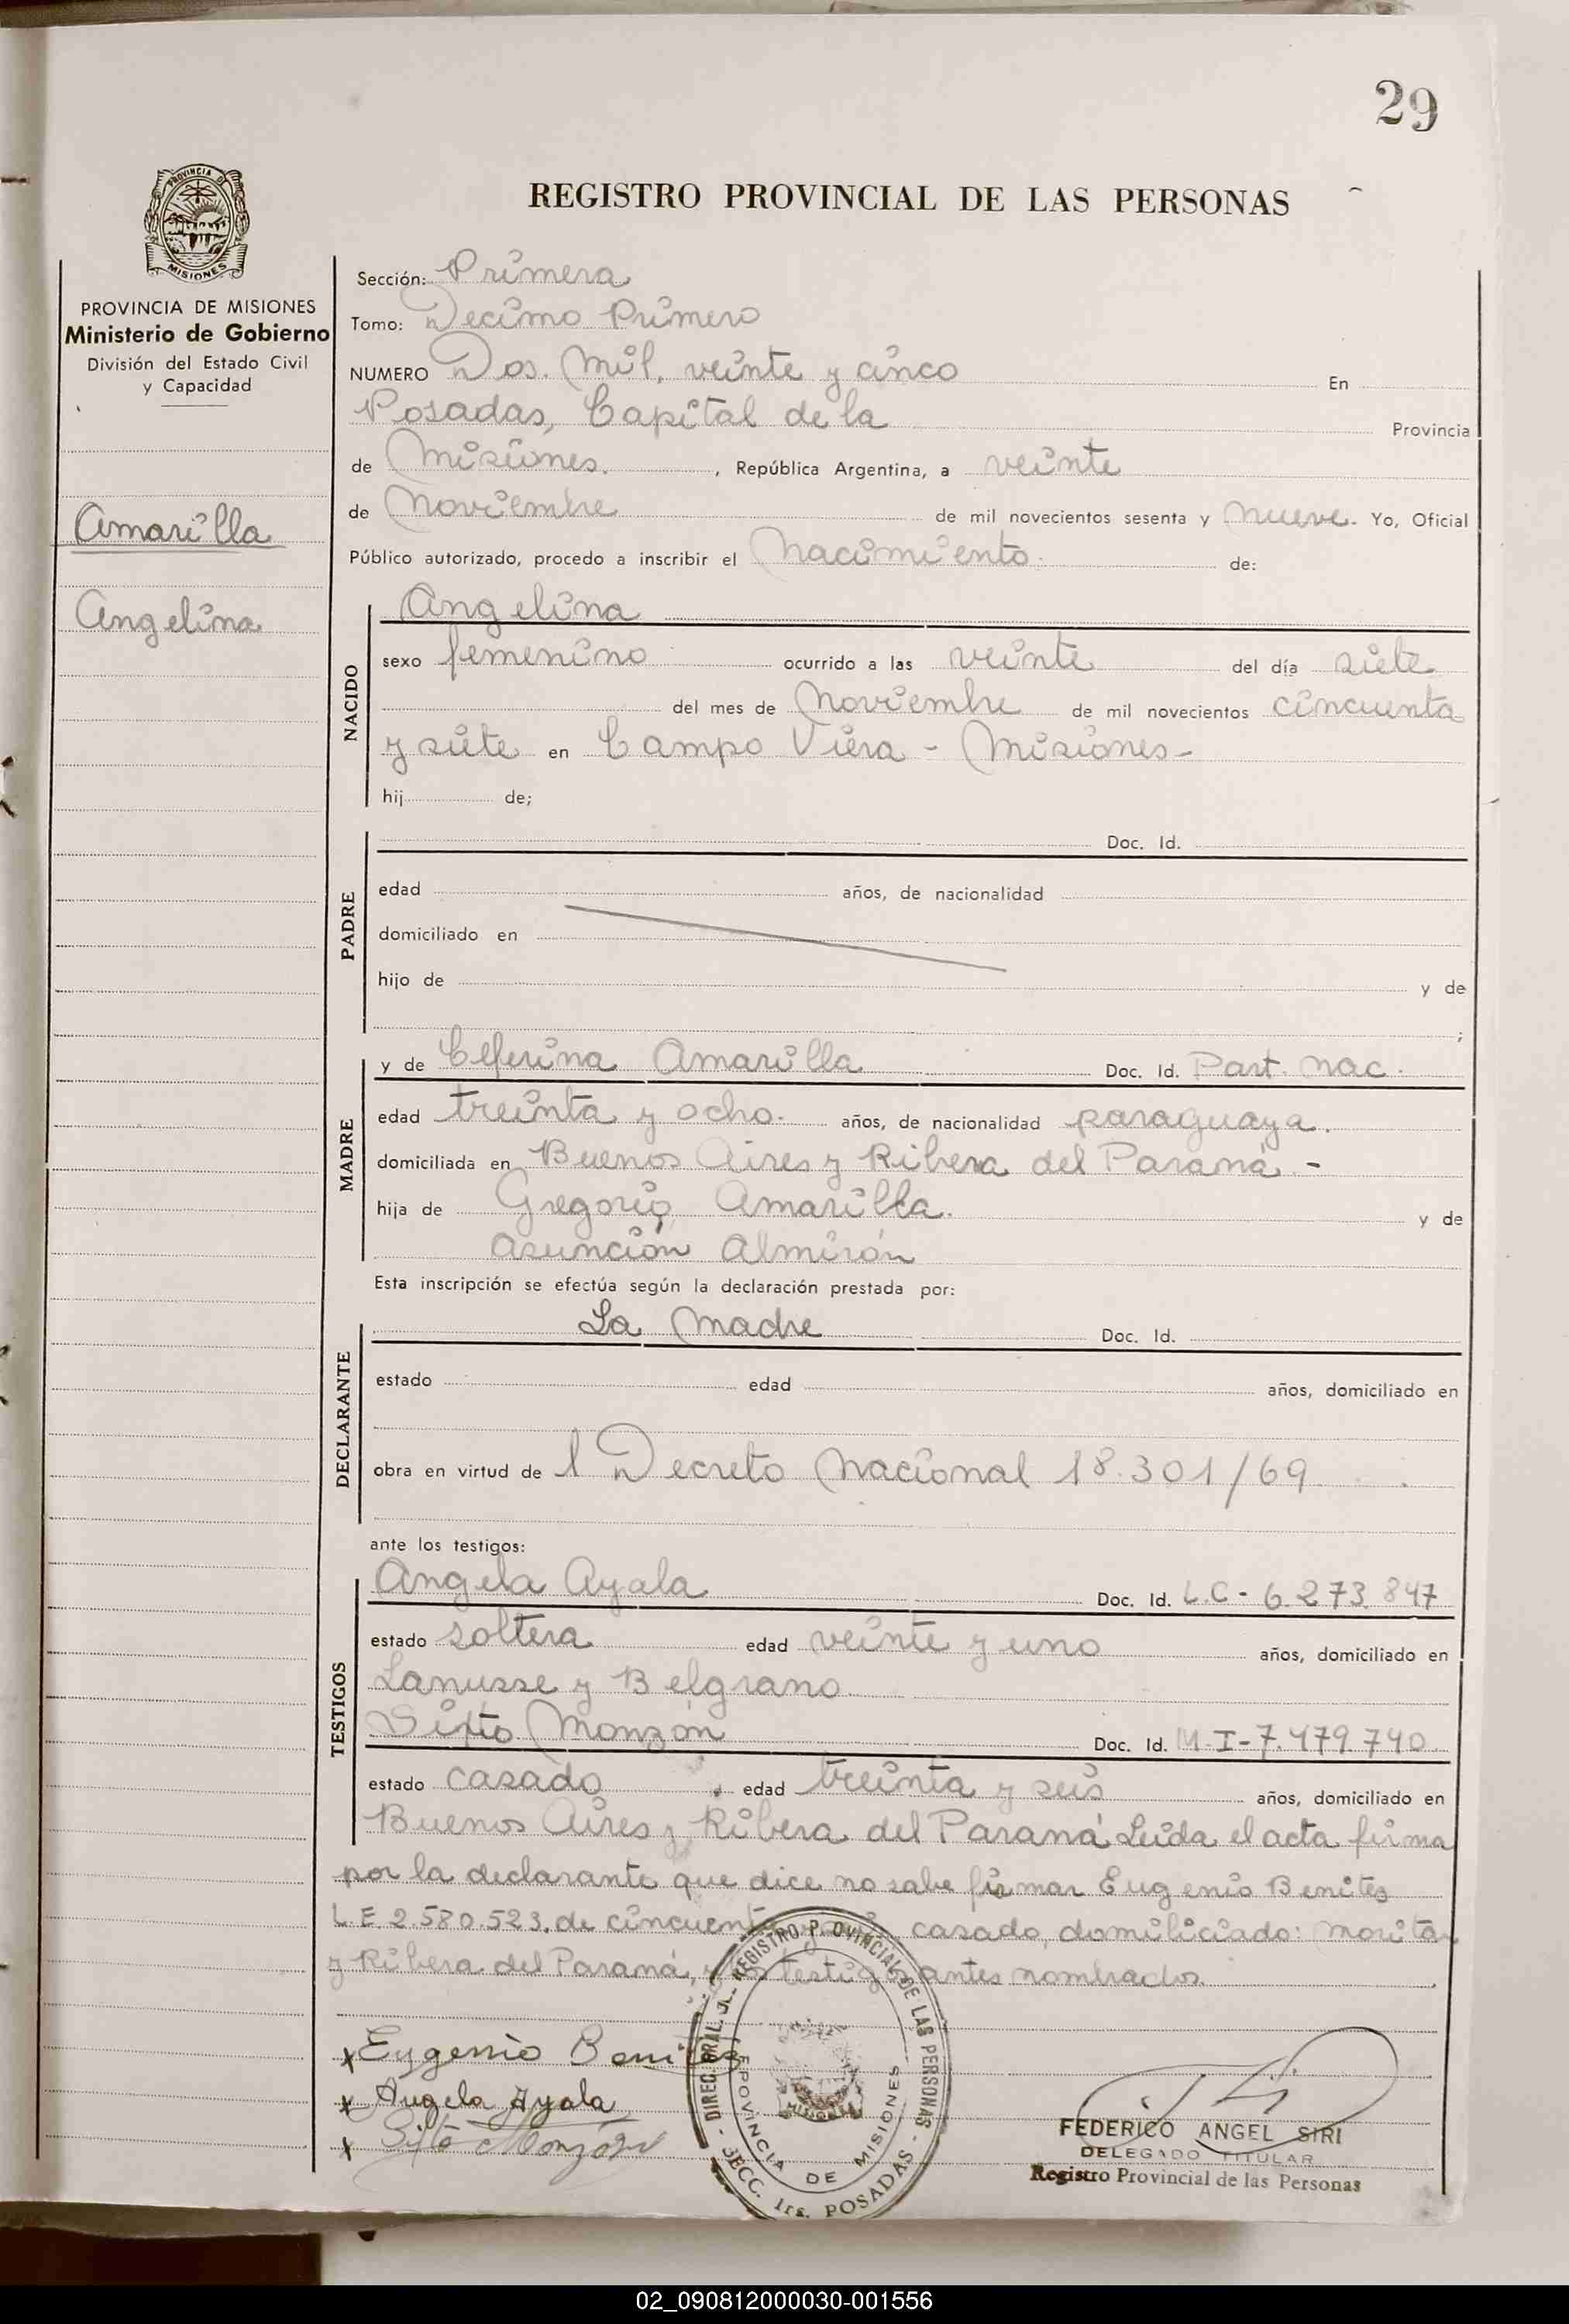 29
PROVINCIA DE
MISIONES
REGISTRO PROVINCIAL DE LAS PERSONAS
PROVINCIA DE MISIONES
Ministerio de Gobierno
División del Estado Civil
y Capacidad
Amarilla
Angelina
Sección: Primera
Tomo: Decimo Primero
NUMERO Dos. Mil, veinte y cinco En
Posadas, Capital de la Provincia
de Misiones. , República Argentina, a veinte
de Noviembre de mil novecientos sesenta y nueve. Yo, Oficial
Público autorizado, procedo a inscribir el Nacimiento. de:
NACIDO
Angelina
sexo femenino ocurrido a las veinte del día siete
del mes de Noviembre de mil novecientos cincuenta
y siete en Campo Viera - Misiones -
hij de;
PADRE
Doc. Id.
edad años, de nacionalidad
domiciliado en
hijo de y de
;
MADRE
y de Ceferina Amarilla Doc. Id. Part. Nac.
edad treinta y ocho. años, de nacionalidad paraguaya.
domiciliada en Buenos Aires y Ribera del Paraná -
hija de Gregorio Amarilla. y de
Asunción Almirón
Esta inscripción se efectúa según la declaración prestada por:
DECLARANTE
La Madre Doc. Id.
estado edad años, domiciliado en
obra en virtud de l Decreto Nacional 18.301/69
ante los testigos:
TESTIGOS
Angela Ayala Doc. Id. L.C - 6.273.847
estado soltera edad veinte y uno años, domiciliado en
Lanusse y Belgrano
Sixto Monzón Doc. Id. M-I-7.479.740
estado casado edad treinta y seis años, domiciliado en
Buenos Aires y Ribera del Paraná Leída el acta firma
por la declarante que dice no sabe firmar Eugenio Benitez
L.E 2.580.523. de cincuenta casado, domiliciado:
y Ribera del Paraná, y los testigos antes nombrados
x Eugenio Benitez
x Angela Ayala
x Sixto Monzón
DIREC. GRAL. DEL REGISTRO PROVINCIAL DE LAS PERSONAS -
PROVINCIA DE MISIONES
- SECC. 1ra. POSADAS -
FEDERICO ANGEL SIRI
DELEGADO TITULAR
Registro Provincial de las Personas
02_090812000030-001556